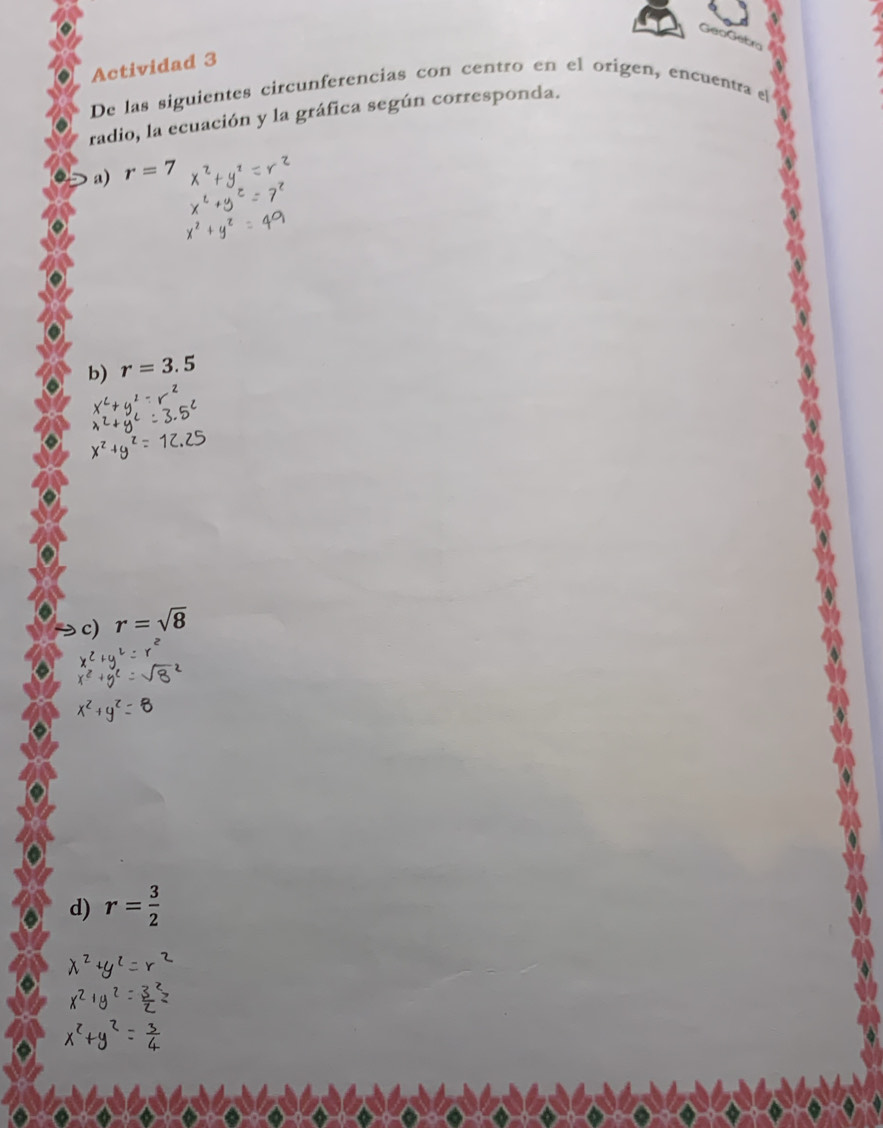 GeoGebra
Actividad 3
De las siguientes circunferencias con centro en el origen, encuentra el
radio, la ecuación y la gráfica según corresponda.
→ a) r = 7 x² + y² = r²
x² + y² = 7²
x² + y² = 49
b) r = 3.5
x² + y² = r²
x² + y² = 3.5²
x² + y² = 12.25
→ c) r = √8
x² + y² = r²
x² + y² = √8²
x² + y² = 8
d) r = 3/2
x² + y² = r²
x² + y² = 3²/2²
x² + y² = 3/4